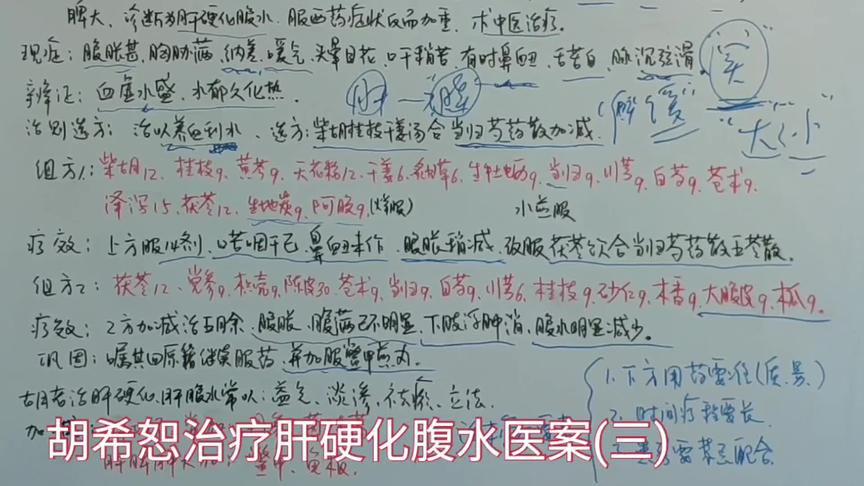 脾大、诊断为肝硬化腹水、服西药症状反而加重、求中医治疗。
现症：腹胀甚、胸胁满、纳差、嗳气、头晕目花、口干稍苦、有时鼻衄、舌苔白、脉沉弦滑。
辨证：血虚水盛、水郁久化热。
治则选方：治以养血利水、选方：柴胡桂枝干姜汤合当归芍药散加减、
组方1：柴胡12、桂枝9、黄芩9、天花粉12、干姜6、炙甘草6、生牡蛎9、当归9、川芎9、白芍9、苍术9、
泽泻15、茯苓12、生地炭9、阿胶9、(烊服) 水煎服
疗效：上方服14剂、口苦咽干已、鼻衄未作、腹胀稍减、改服茯苓饮合当归芍药散五苓散、
组方2：茯苓12、党参9、枳壳9、陈皮30、苍术9、当归9、白芍9、川芎6、桂枝9、砂仁9、木香9、大腹皮9、木瓜9。
疗效：2方加减治五月余、腹胀、腹满已不明显、下肢浮肿消、腹水明显减少。
巩固：嘱其回原籍继续服药、并加服鳖甲煎丸。
胡老治肝硬化、肝腹水常以：益气、淡渗、祛瘀、立法、
肝—腹
"实"
(解
"大<小"
1、下方用药要准(质、量)
2、时间疗程要长
配合
胡希恕治疗肝硬化腹水医案(三)